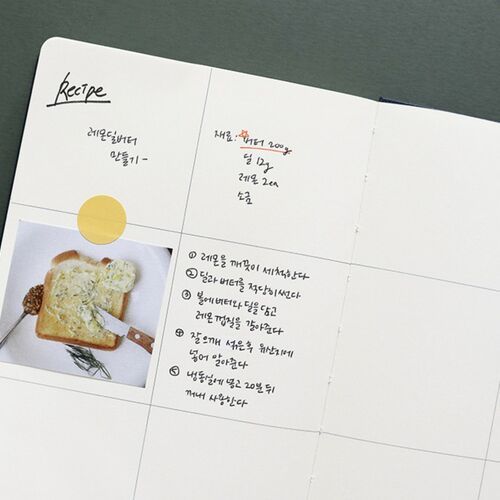 Recipe
레몬딜버터
만들기-
재료: 버터 200g
딜 12g
레몬 2ea
소금
① 레몬을 깨끗이 세척한다
② 딜과 버터를 적당히 썬다
③ 볼에 버터와 딜을 담고
레몬 껍질을 갈아준다
④ 잘 으깨 섞은후 유산지에
넣어 말아준다
⑤ 냉동실에 넣고 20분 뒤
꺼내 사용한다